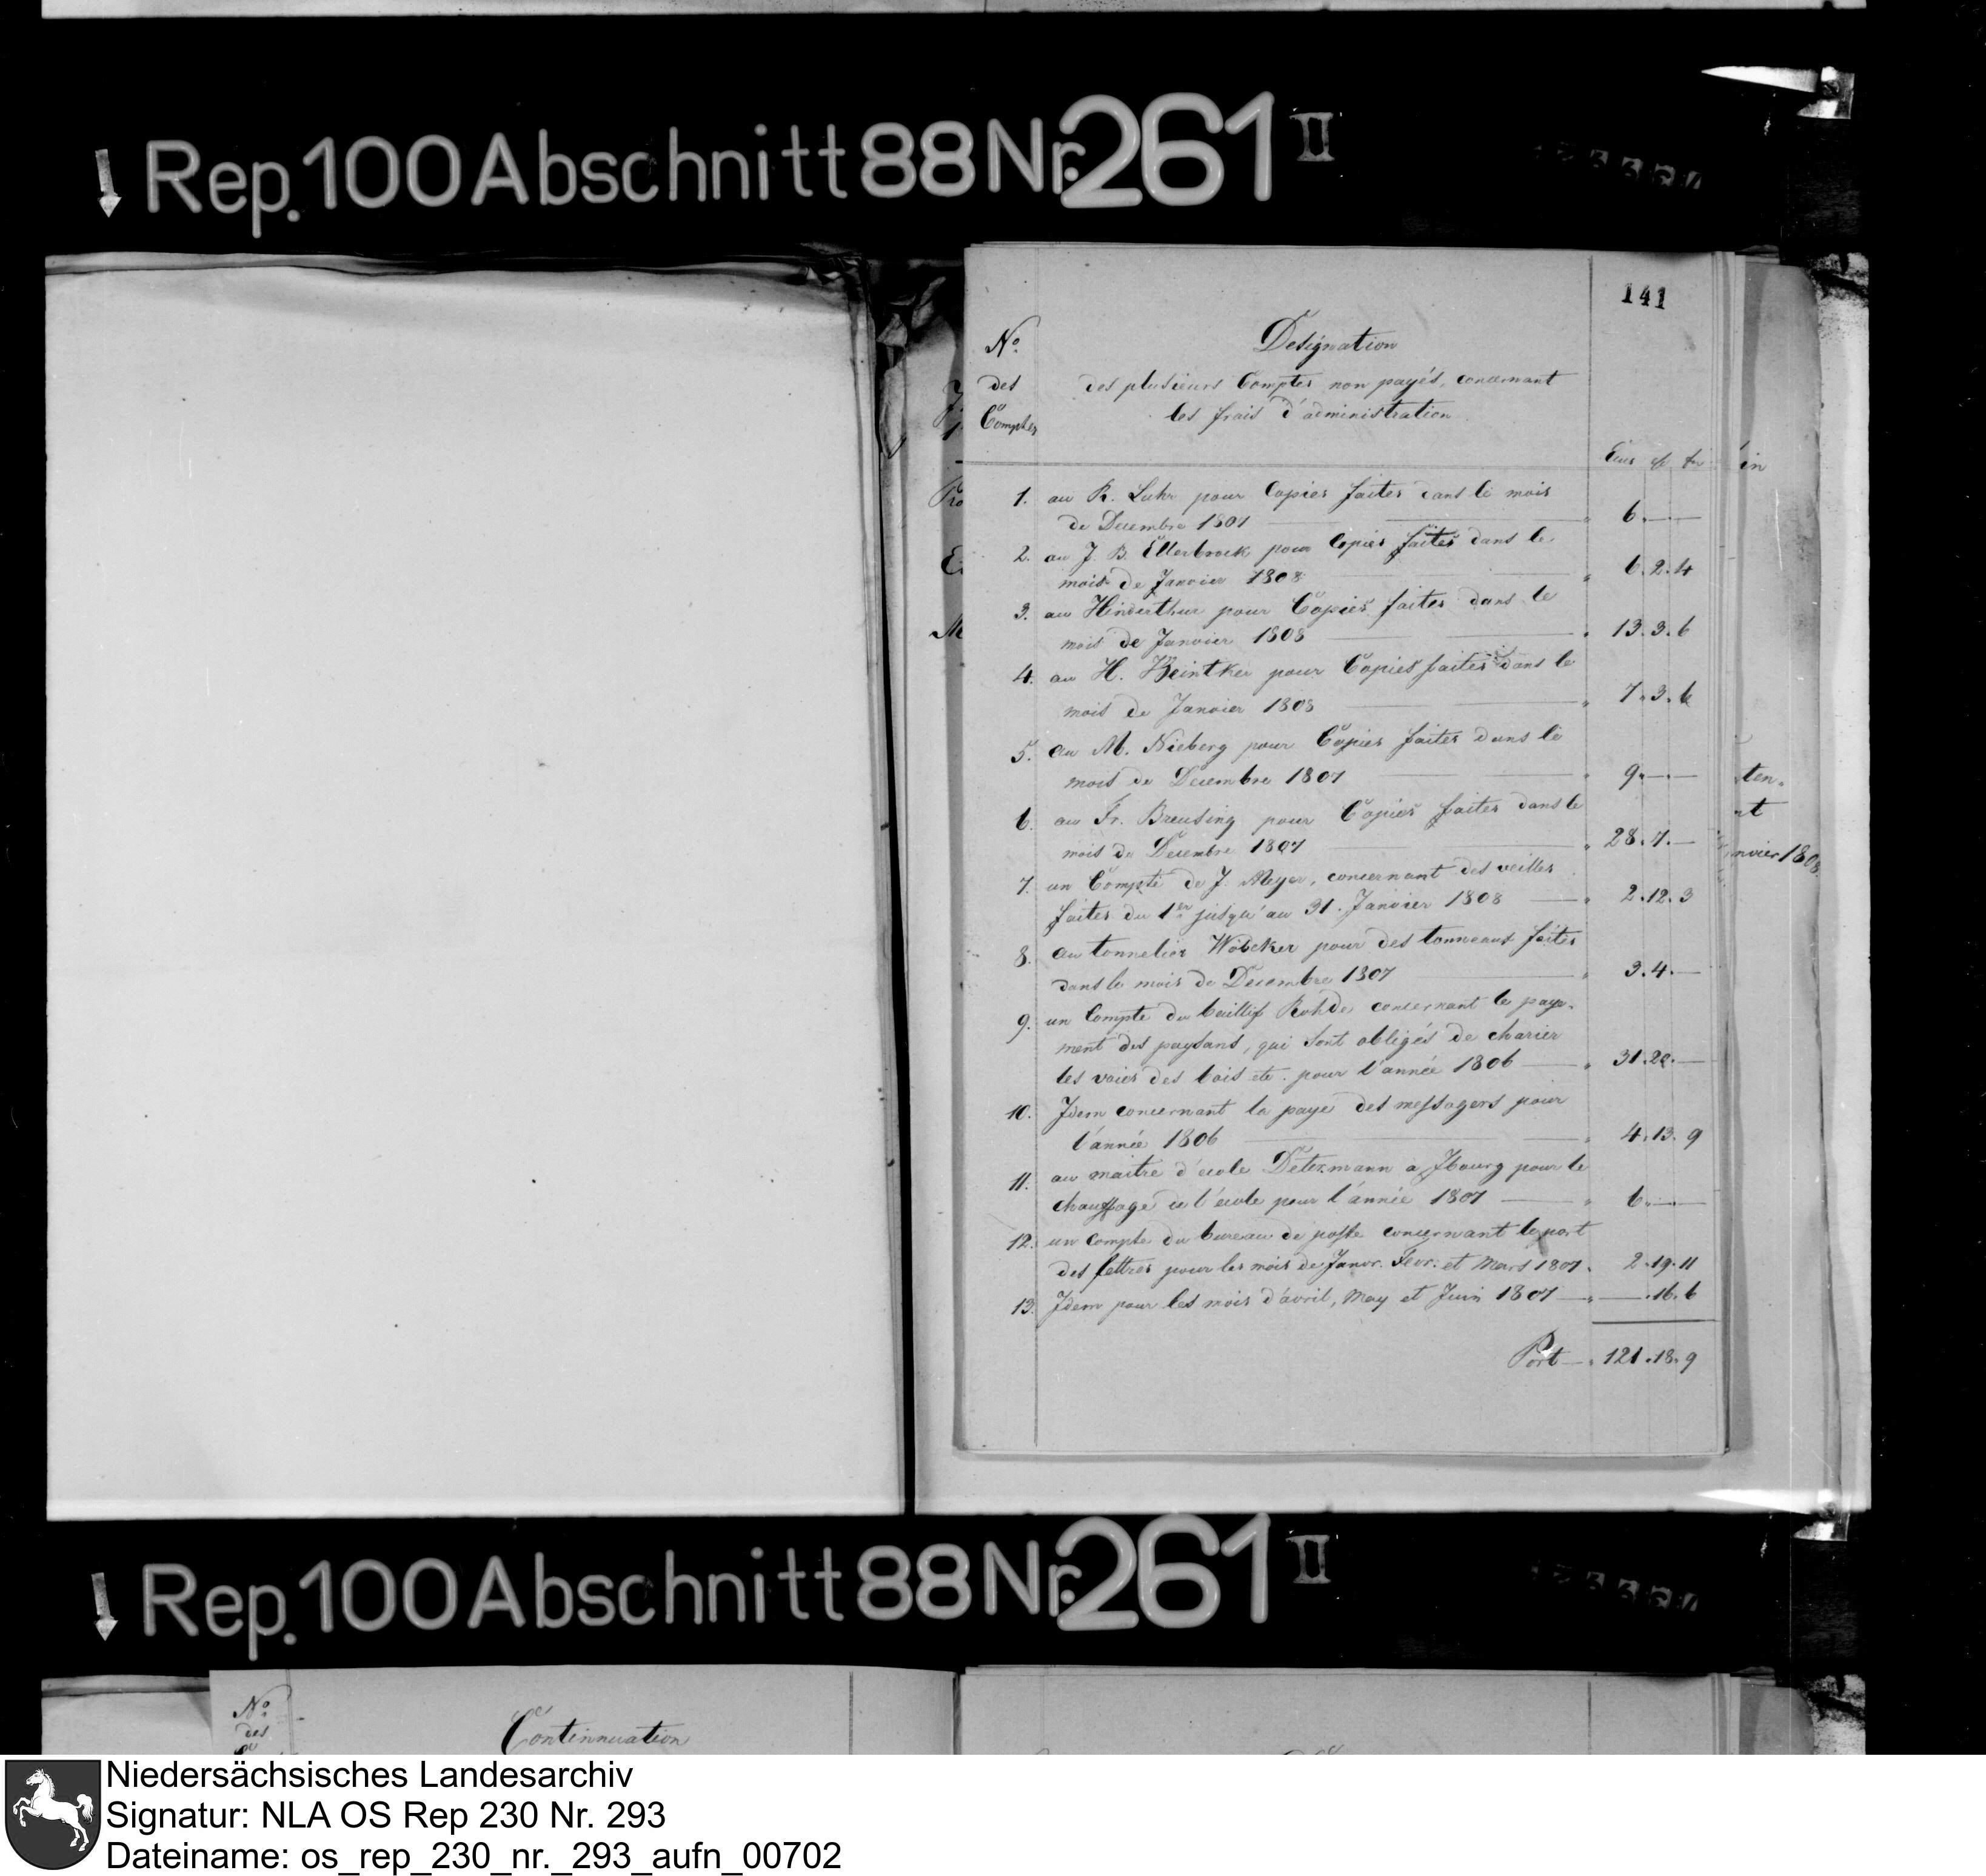 Rep. 100 Abschnitt 88 Nr. 261 II
141
No.
des
Comptes
Designation
des plusieurs Comptes non payés, concernant
les frais d'administration
in
1. au R. Luhr pour Copies faites dans le mois
de Decembre 1807 6.—.—
2. au J. B. Ellerbrock pour Copies faites dans le
mois de Janvier 1808 6.2.4
3. au Hinderthur pour Copies faites dans le
mois de Janvier 1808 13.3.6
4. au H. Heintker pour Copies faites dans le
mois de Janvier 1808 7.3.6
5. au M. Nieberg pour Copies faites dans le
mois de Decembre 1807 9.—.—
6. au Fr. Breusing pour Copies faites dans le
mois de Decembre 1807 28.7.—
7. un Compte de J. Meyer, concernant des veilles
faites du 1er jusqu'au 31. Janvier 1808 2.12.3
8. au tonnelier Wöbcker pour des tonneaux faites
dans le mois de Decembre 1807 3.4.—
9. un Compte du baillif Rohde concernant le paye-
ment des paysans, qui sont obligés de charier
les voies des bois etc. pour l'année 1806 31.20.—
10. Idem concernant la paye des messagers pour
l'année 1806 4.13.9
11. au maitre d'ecole Detezmann a Jbourg pour le
chauffage de l'ecole pour l'année 1807 6.—.—
12. un Compte du bureau de poste concernant le port
des lettres pour les mois de Janvr. Fevr. et Mars 1807. 2.19.11
13. Idem pour les mois d'avril, May et Juin 1807 —.16.6
Port 121.18.9
ten-
nvier 1808
Rep. 100 Abschnitt 88 Nr. 261 II
No.
des
Continnuation
Niedersächsisches Landesarchiv
Signatur: NLA OS Rep 230 Nr. 293
Dateiname: os_rep_230_nr._293_aufn_00702